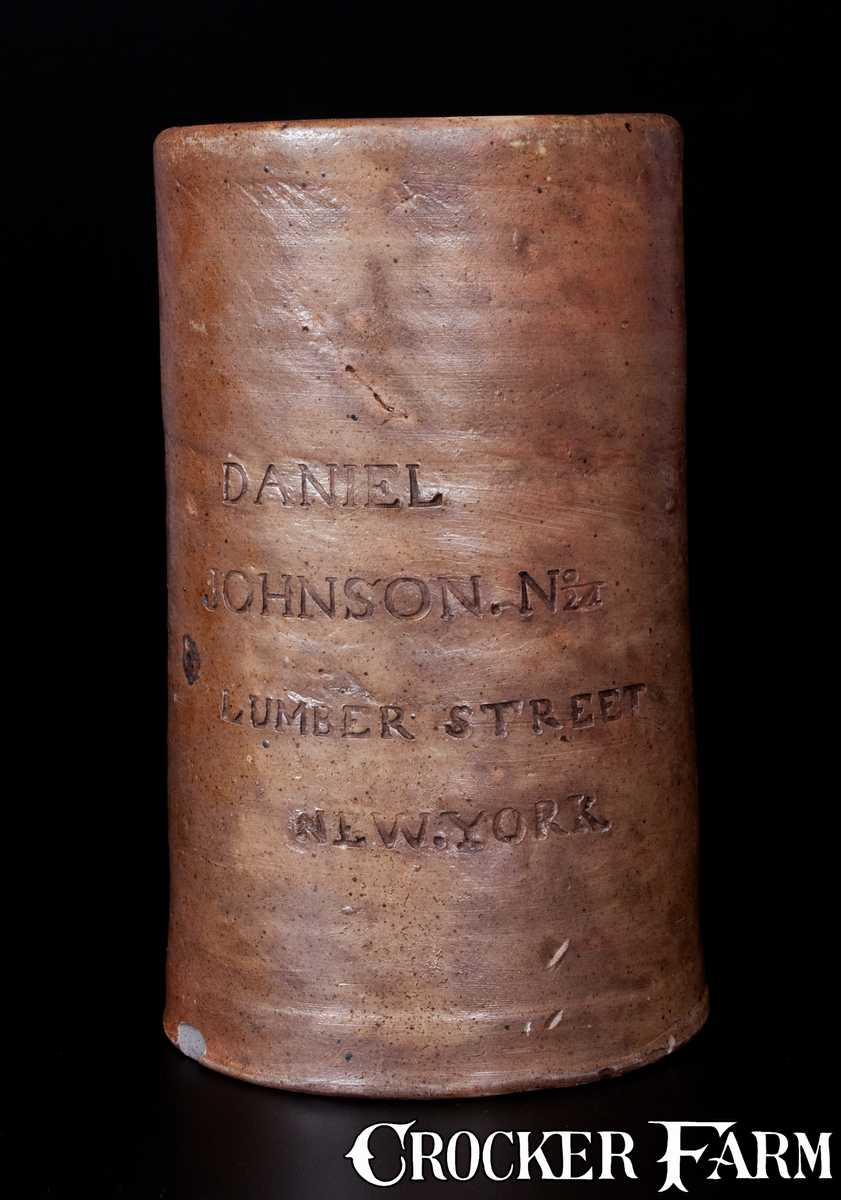 DANIEL
JOHNSON. Nº 24
LUMBER STREET
NEW.YORK
CROCKER FARM